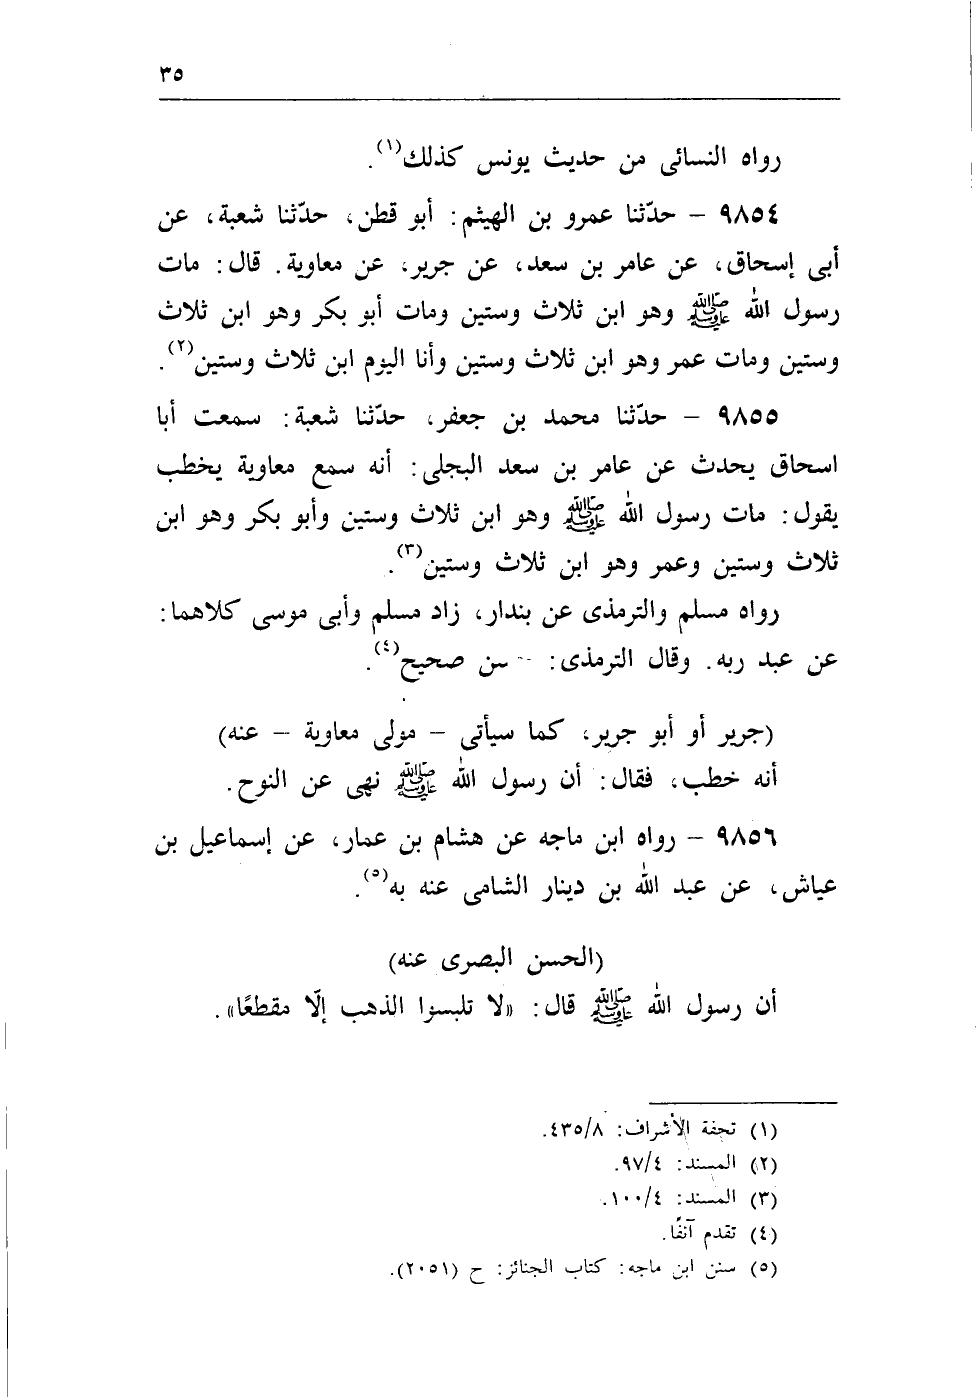 ٣٥
رواه النسائى من حديث يونس كذلك(١).
٩٨٥٤ – حدّثنا عمرو بن الهيثم: أبو قطن، حدّثنا شعبة، عن
أبى إسحاق، عن عامر بن سعد، عن جرير، عن معاوية. قال: مات
رسول الله ﷺ وهو ابن ثلاث وستين ومات أبو بكر وهو ابن ثلاث
وستين ومات عمر وهو ابن ثلاث وستين وأنا اليوم ابن ثلاث وستين(٢).
٩٨٥٥ – حدّثنا محمد بن جعفر، حدّثنا شعبة: سمعت أبا
اسحاق يحدث عن عامر بن سعد البجلى: أنه سمع معاوية يخطب
يقول: مات رسول الله ﷺ وهو ابن ثلاث وستين وأبو بكر وهو ابن
ثلاث وستين وعمر وهو ابن ثلاث وستين(٣).
رواه مسلم والترمذى عن بندار، زاد مسلم وأبى موسى كلاهما:
عن عبد ربه. وقال الترمذى: صحيح(٤).
(جرير أو أبو جرير، كما سيأتى – مولى معاوية – عنه)
أنه خطب، فقال: أن رسول الله ﷺ نهى عن النوح.
٩٨٥٦ – رواه ابن ماجه عن هشام بن عمار، عن إسماعيل بن
عياش، عن عبد الله بن دينار الشامى عنه به(٥).
(الحسن البصرى عنه)
أن رسول الله ﷺ قال: «لا تلبسوا الذهب إلّا مقطعًا».
(١) تحفة الأشراف: ٤٣٥/٨.
(٢) المسند: ٩٧/٤.
(٣) المسند: ١٠٠/٤.
(٤) تقدم آنفًا.
(٥) سنن ابن ماجه: كتاب الجنائز: ح (٢٠٥١).